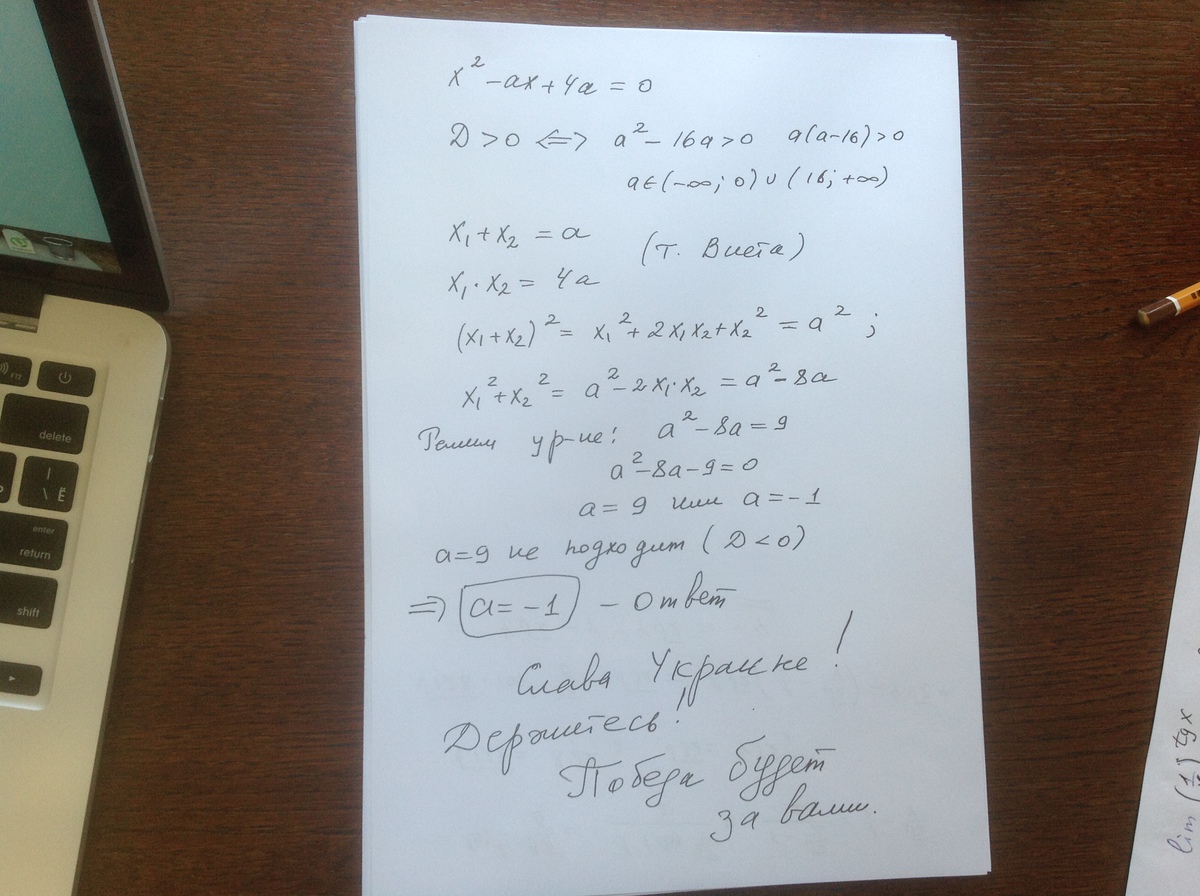 x² - ax + 4a = 0
D > 0 <=> a² - 16a > 0 a(a-16) > 0
a ∈ (-∞; 0) ∪ (16; +∞)
x₁ + x₂ = a
(т. Виета)
x₁ · x₂ = 4a
(x₁ + x₂)² = x₁² + 2x₁x₂ + x₂² = a² ;
x₁² + x₂² = a² - 2x₁·x₂ = a² - 8a
Решим ур-ие: a² - 8a = 9
a² - 8a - 9 = 0
a = 9 или a = -1
a = 9 не подходит (D < 0)
=> a = -1 - ответ
Слава Украине!
Держитесь!
Победа будет
за вами.
delete
\ Ё
enter
return
shift
F12
lim (1/ ) tgx